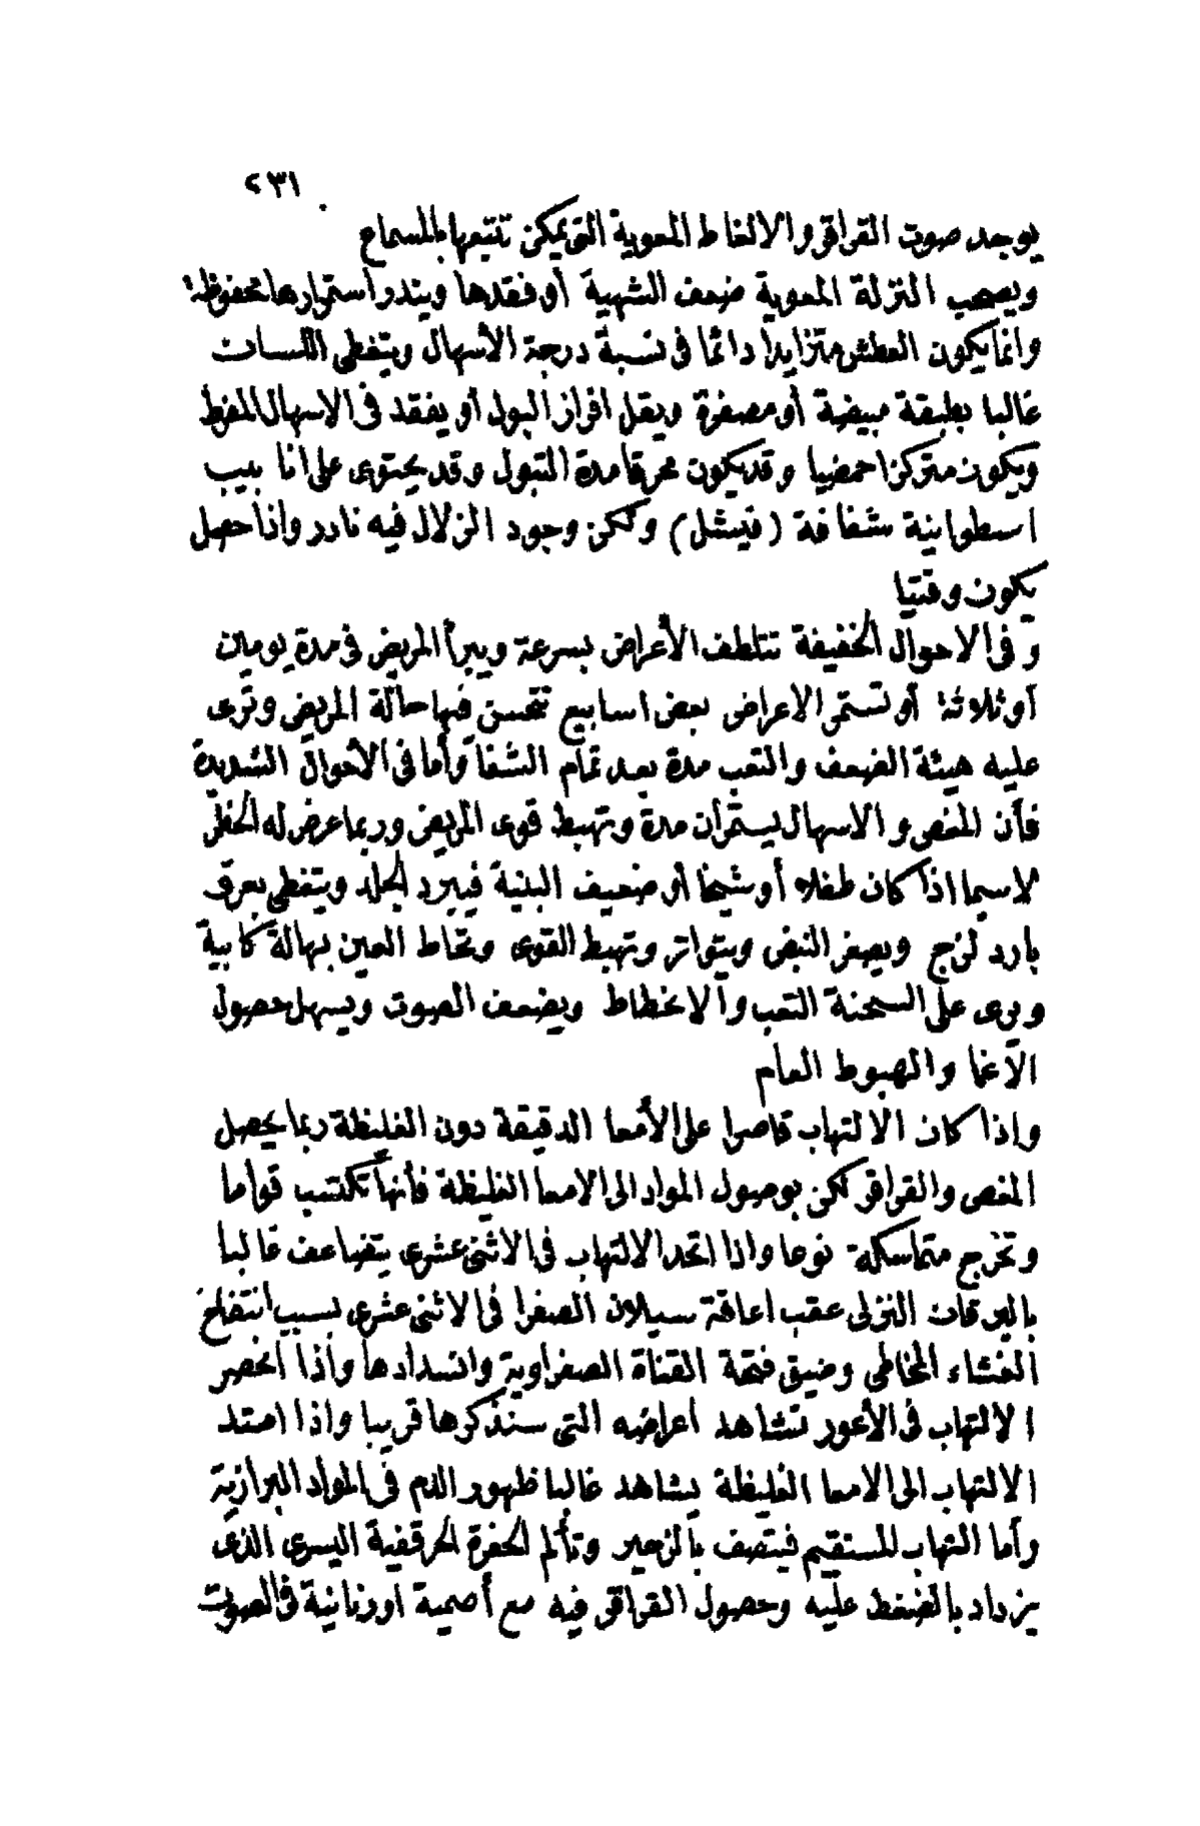 ٢٣١
يوجد صوت القراقر والالغاط المعوية التى يمكن تتبعها بالمسماع
ويصحب النزلة المعوية ضعف الشهية أو فقدها ويندر استمرارها محفوظة
وانما يكون العطش متزايدا دائما فى نسبة درجة الأسهال ويتغطى اللسان
غالبا بطبقة مبيضة أو مصفرة ويقل افراز البول أو يفقد فى الاسهال المفرط
ويكون متركزا حمضيا وقد يكون محرقا مدة التبول وقد يحتوى على انا بيب
اسطوانية شفافة (فيشل) ولكن وجود الزلال فيه نادر واذا حصل
يكون وقتيا
وفى الاحوال الخفيفة تتلطف الأعراض بسرعة ويبرأ المريض فى مدة يومين
أو ثلاثة أو تستمر الاعراض بعض اسابيع تتحسن فيها حالة المريض وترى
عليه هيئة الضعف والتعب مدة بعد تمام الشفا وأما فى الأحوال الشديدة
فأن المغص والاسهال يستمران مدة وتهبط قوى المريض وربما عرض له الخطر
لاسيما اذا كان طفلا أو شيخا أو ضعيف البنية فيبرد الجلد ويتغطى بعرق
بارد لزج ويصغر النبض ويتواتر وتهبط القوى وتحاط العين بهالة كابية
ويرى على السحنة التعب والانحطاط ويضعف الصوت ويسهل حصول
الاغما والهبوط العام
واذا كان الالتهاب قاصرا على الأمعا الدقيقة دون الغليظة ربما يحصل
المغص والقراقر لكن بوصول المواد الى الامعا الغليظة فأنها تكتسب قواما
وتخرج متماسكة نوعا واذا اتحد الالتهاب فى الاثنى عشرى يتضاعف غالبا
باليرقان النزلى عقب اعاقة سيلان الصفرا فى الاثنى عشرى بسبب انتفاخ
الغشاء المخاطى وضيق فتحة القناة الصفراوية وانسدادها واذا انحصر
الالتهاب فى الأعور تشاهد اعراضه التى سنذكرها قريبا واذا امتد
الالتهاب الى الامعا الغليظة يشاهد غالبا ظهور الدم فى المواد البرازية
وأما التهاب المستقيم فيتصف بالزحير وتألم الحفرة الحرقفية اليسرى الذى
يزداد بالضغط عليه وحصول القراقر فيه مع أصمية اورنانية فى الصوت